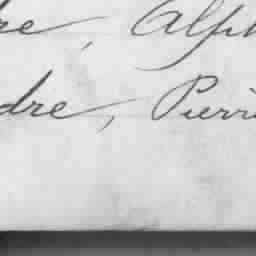 re, Alph
dre, Pierr